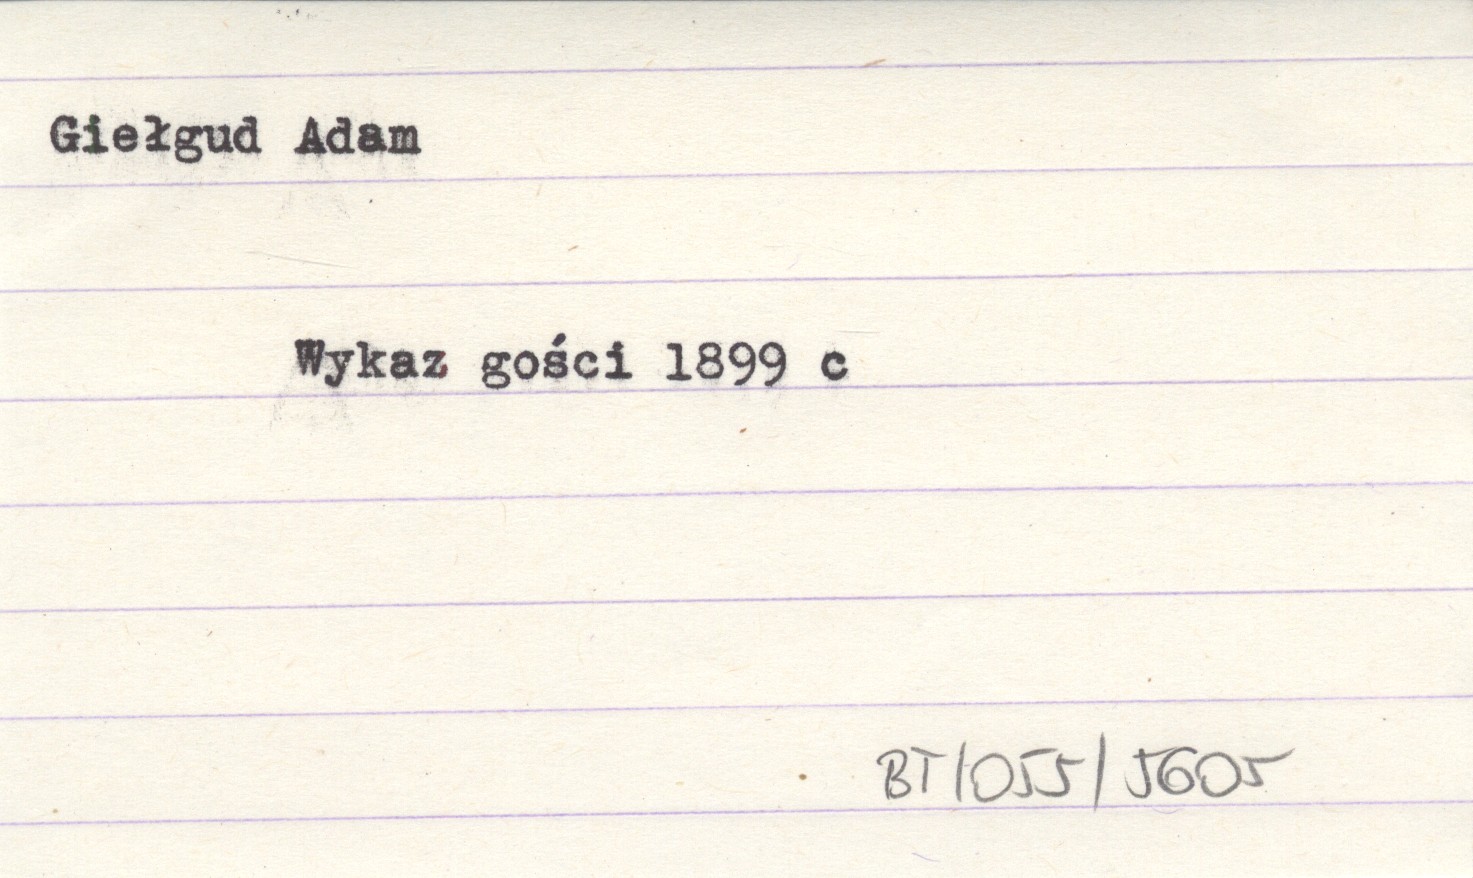 Giełgud Adam
Wykaz gości 1899 c
BT/055/5605